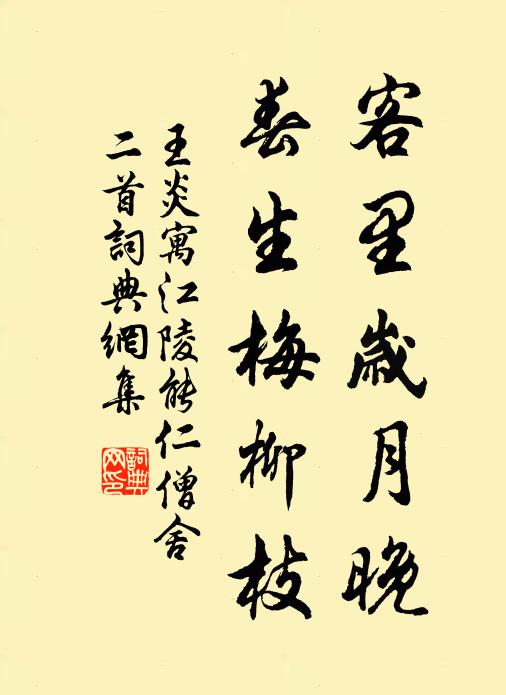 客里歲月晚
春生梅柳枝
王炎寓江陵能仁僧舍
二首詞典網集
詞典
网印